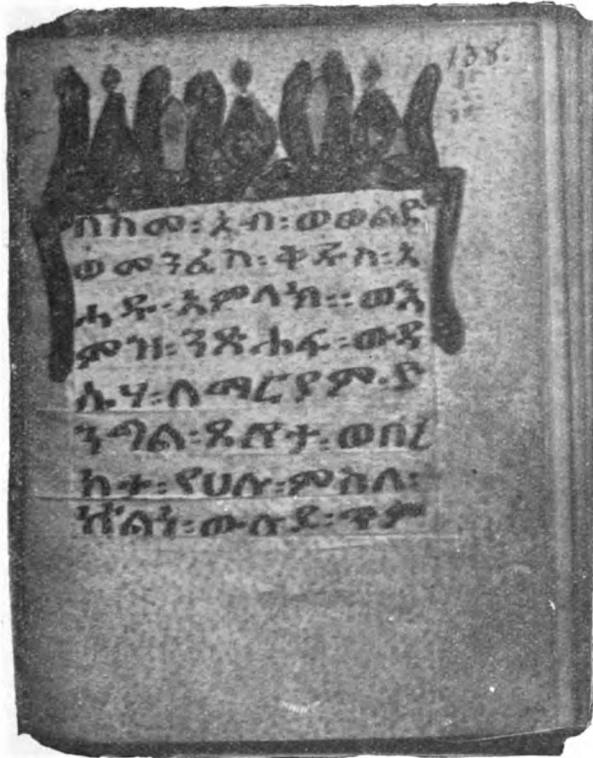 138.
በስመ፡አብ፡ወወልድ
ወመንፈስ፡ቅዱስ፡አ
ሐዱ፡አምላክ፡፡ወእ
ምዝ፡ንጽሐፍ፡ውዳ
ሴሃ፡ለማርያም፡ድ
ንግል፡ጸሎታ፡ወበረ
ከታ፡የሀሉ፡ምስለ፡
ኵልነ፡ውሉደ፡ጥም